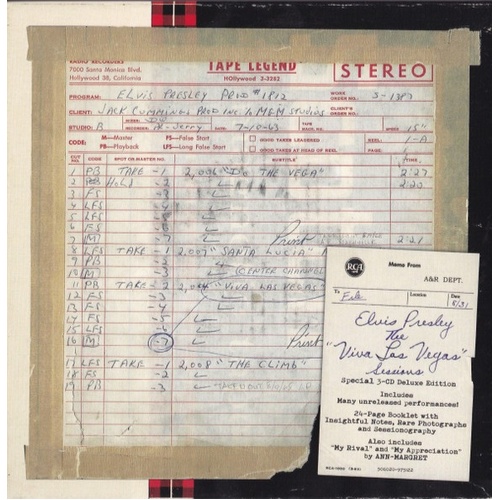 RADIO RECORDERS
7000 Santa Monica Blvd.
Hollywood 38, California
TAPE LEGEND
Hollywood 3-3282
STEREO
PROGRAM: ELVIS PRESLEY PROD #1812
WORK ORDER NO.: 3-1387
CLIENT: JACK CUMMINGS PROD INC. % MGM STUDIOS
CLIENT'S ORDER NO.:
STUDIO: B
MIXER:
RECORDER: Jerry
DATE: 7-10-63
TAPE MACH. NO.
SPEED 15"
CODE: M—Master FS—False Start
PB—Playback LFS—Long False Start
GOOD TAKES LEADERED
GOOD TAKES AT HEAD OF REEL
REEL: 1-A
PAGE:
CUT NO. CODE SPOT OR MASTER NO. SUBTITLE TIME
1 PB TAKE -1 2,006 "DO THE VEGA" 2:27
2 PB HOLD -2 2:20
3 FS -3
4 LFS -4
5 LFS -5
6 FS -6
7 [M] -7 Print 2:21
8 LFS TAKE -1 2,007 "SANTA LUCIA"
9 PB -2
10 [M] -3 (CENTER CHANNEL
11 PB TAKE -2 "VIVA LAS VEGAS"
12 FS -3
13 FS -4
14 FS -5
15 LFS -6
16 [M] -7 Print
17 LFS TAKE -1 2,008 "THE CLIMB"
18 FS -2
19 PB -3
RCA
Memo From
A&R DEPT.
To File
Location
Date 8/31
Elvis Presley
The
"Viva Las Vegas"
Sessions
Special 3-CD Deluxe Edition
Includes
Many unreleased performances!
24-Page Booklet with
Insightful Notes, Rare Photographs
and Sessionography
Also includes
"My Rival" and "My Appreciation"
by ANN-MARGRET